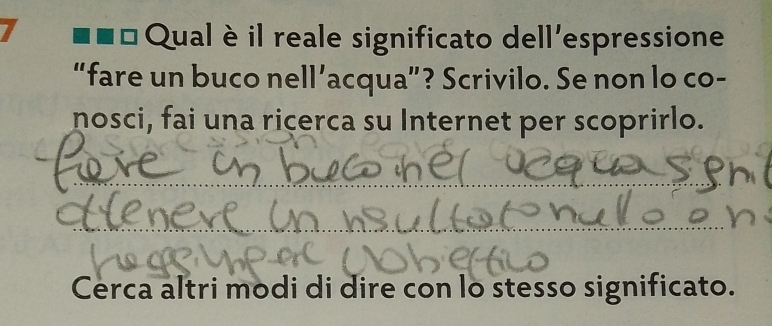 7 Qual è il reale significato dell'espressione
"fare un buco nell'acqua"? Scrivilo. Se non lo co-
nosci, fai una ricerca su Internet per scoprirlo.
fare un buco nel acqua
ottenere un nsultato nullo o
obiettivo
Cerca altri modi di dire con lo stesso significato.